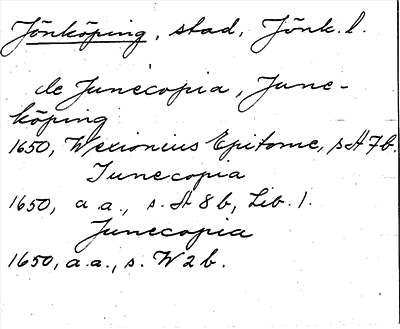 Jönköping, stad, Jönk. l.
de Junecopia, June-
köping
1650, Wexionius Epitome, s A 7 b.
Junecopia
1650, a a., s. A 8 b, Lib. 1.
Junecopia
1650, a.a., s. W 2 b.